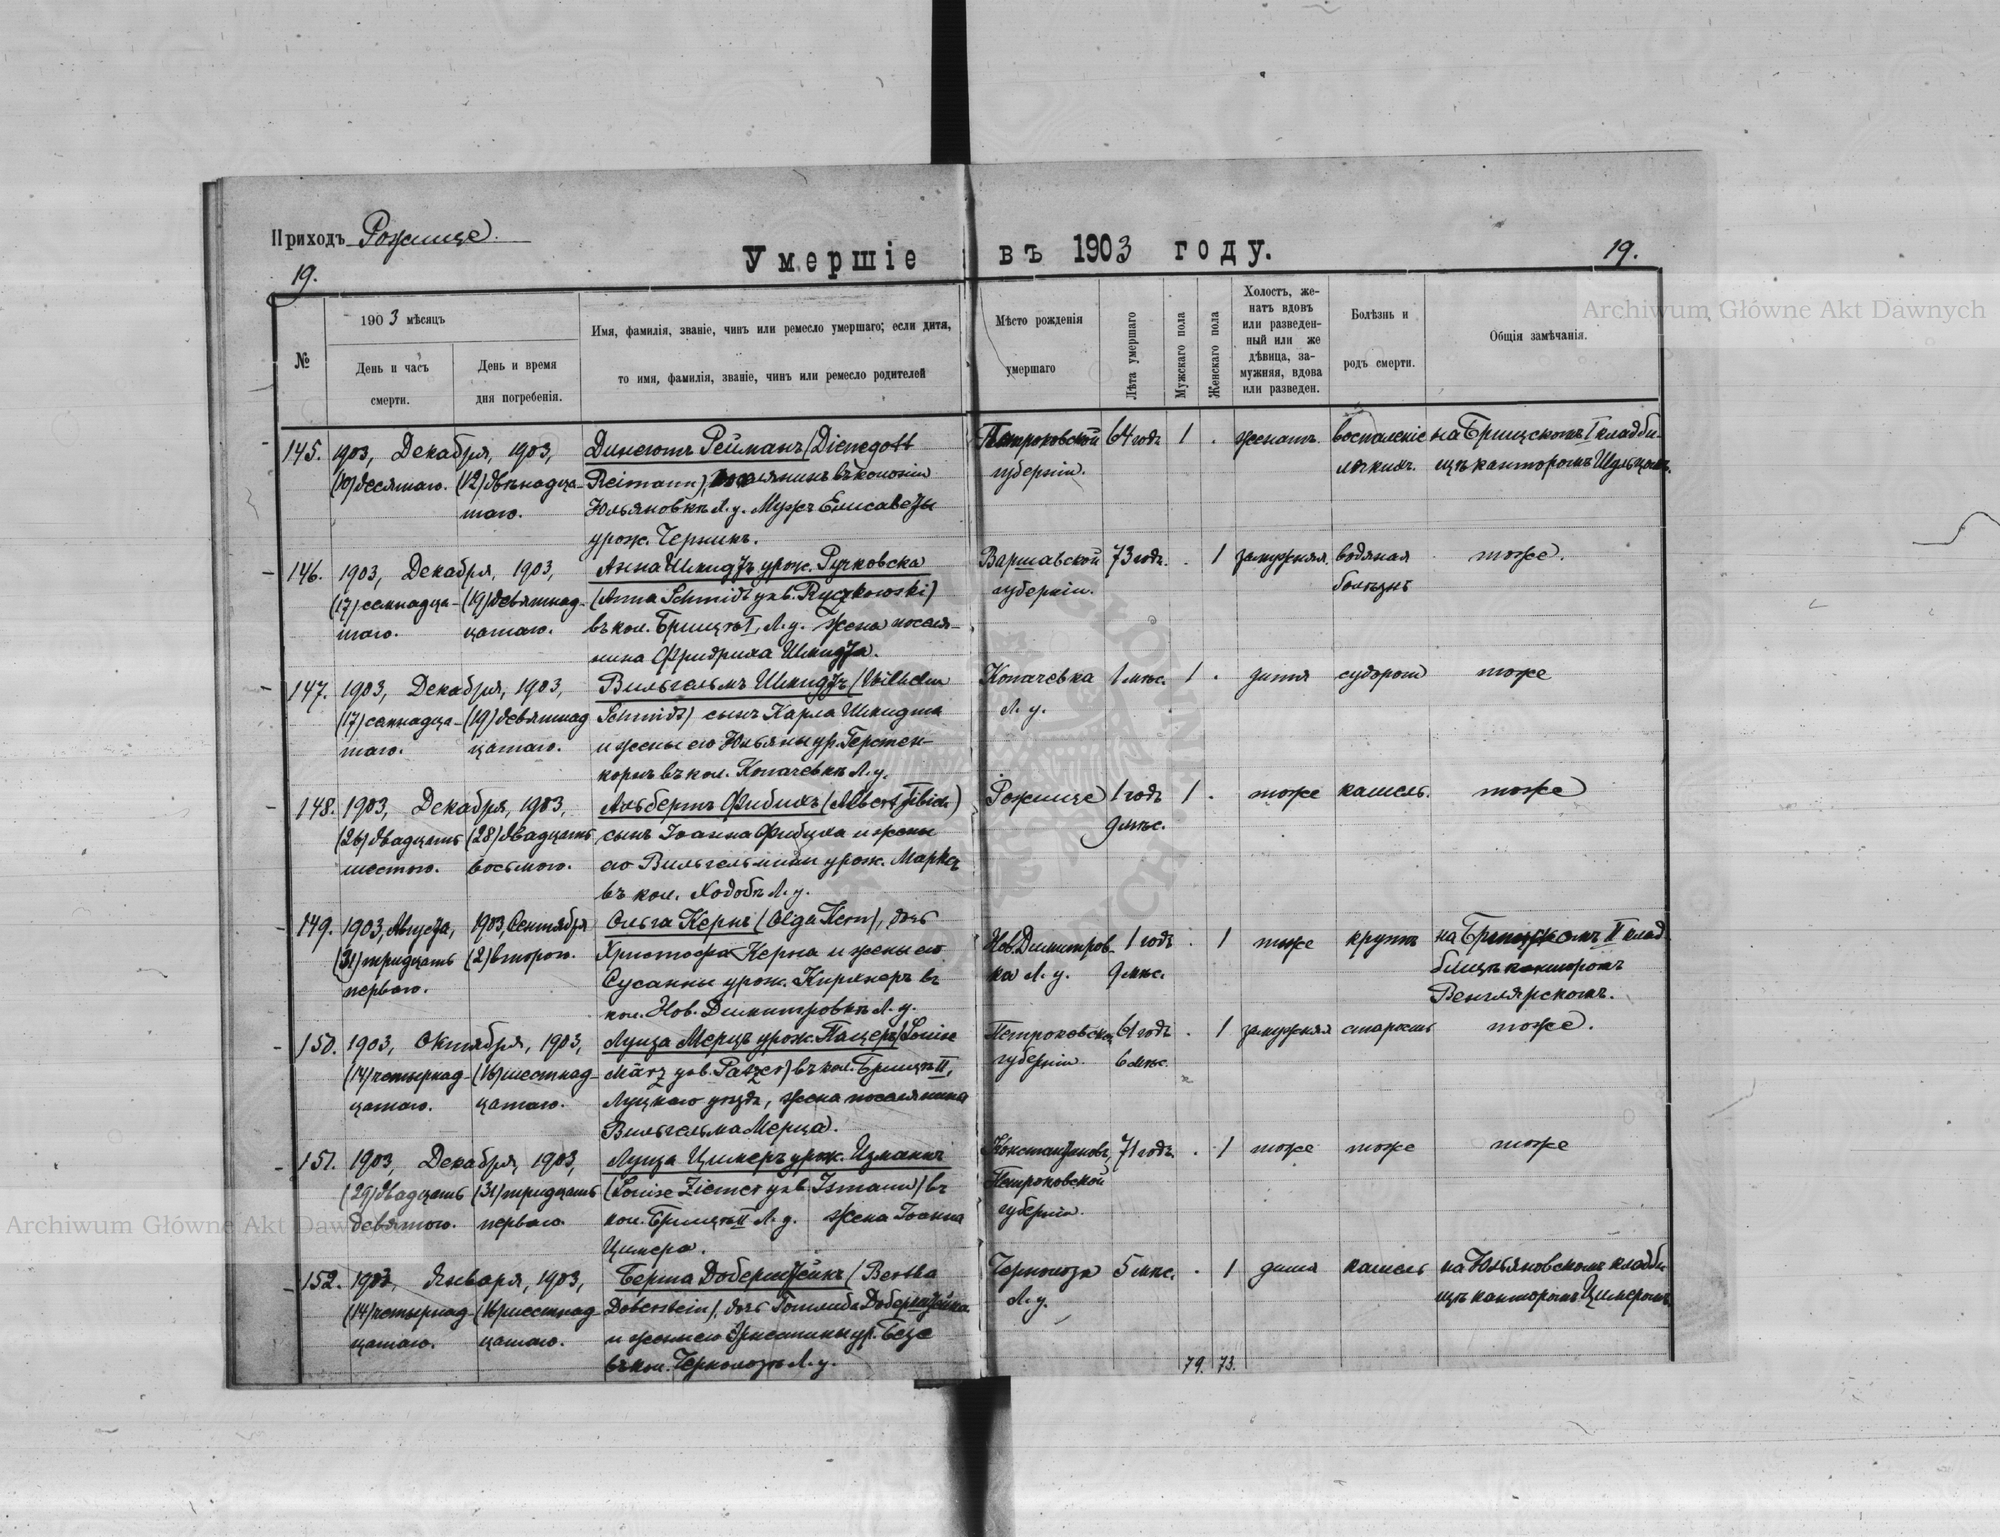 Приходъ Рожище.
19.
Умершіе въ 1903 году.
19.
№
1903 мѣсяцъ
День и часъ смерти.
День и время дня погребенія.
Имя, фамилія, званіе, чинъ или ремесло умершаго; если дитя,
то имя, фамилія, званіе, чинъ или ремесло родителей
Мѣсто рожденія
умершаго
Лѣта умершаго
Мужскаго пола
Женскаго пола
Холостъ, же-
натъ вдовъ
или разведен-
ный или же
дѣвица, за-
мужняя, вдова
или разведен.
Болѣзнь и
родъ смерти.
Общія замѣчанія.
145. 1903, Декабря, 1903, Динеготъ Рейманъ (Dienegott Петроковской 64 годъ 1 . женатъ. воспаленіе на Брищскомъ I кладби-
(10) десятаго. (12) двѣнадца- Reimann), поселянинъ въ колоніи губерніи. легкихъ. щѣ канторомъ Шульцомъ.
таго. Юльяновкѣ Л. у. Мужъ Елисаветы
урож. Чернинъ.
146. 1903, Декабря, 1903, Анна Шмидтъ урож. Ручковска Варшавской 73 годъ. . 1 замужняя. водяная тоже.
(17) семнадца- (19) девятнад- (Anna Schmidt geb. Ryczkowski) губерніи. болѣзнь
таго. цатаго. въ кол. Брищтѣ I, Л. у. Жена поселя-
нина Фридриха Шмидта.
147. 1903, Декабря, 1903, Вильгельмъ Шмидтъ (Wilhelm Копачевка 1 мѣс. 1 . дитя судороги тоже
(17) семнадца- (19) девятнад Schmidt) сынъ Карла Шмидта Л. у.
таго. цатаго. и жены его Юльяны ур. Герстен-
корнъ въ кол. Копачевкѣ Л. у.
148. 1903, Декабря, 1903, Альбертъ Фибихъ (Albert Fibich) Рожище 1 годъ 1 . тоже кашель. тоже
(26) двадцать (28) двадцать сынъ Іоанна Фибиха и жены 9 мѣс.
шестого. восьмого. его Вильгельмины урож. Марксъ
въ кол. Ходобѣ Л. у.
149. 1903, Августа, 1903, Сентября Ольга Кернъ (Olga Kern), дочь Нов. Димитров- 1 годъ . 1 тоже крупъ на Брищскомъ II клад-
(31) тридцать (2) второго. Христофа Керна и жены его ка Л. у. 9 мѣс. бищѣ канторомъ
перваго. Сусанны урож. Кирхнеръ въ Венглярскомъ.
кол. Нов. Димитровкѣ Л. у.
150. 1903, Октября, 1903, Луиза Мерцъ урож. Пацеръ (Louise Петроковской 61 годъ . 1 замужняя старость тоже.
(14) четырнад- (16) шестнад- März geb. Patzer) въ кол. Брищтѣ II, губерніи. 6 мѣс.
цатаго. цатаго. Луцкаго уѣзда, жена поселянина
Вильгельма Мерца.
151. 1903, Декабря, 1903, Луиза Цимеръ урож. Измань Константиновъ, 71 годъ. . 1 тоже тоже тоже
(29) двадцать (31) тридцать (Louise Ziemer geb. Ismann) въ Петроковской
девятого. перваго. кол. Брищтѣ II Л. у. Жена Іоанна губерніи.
Цимера.
152. 1903, Января, 1903, Берта Доберштейнъ (Bertha 5 мѣс. . 1 дитя кашель на Юльяновскомъ кладби-
(14) четырнад- (16) шестнад- Doberstein), дочь Готлиба Доберштейна Л. у. щѣ канторомъ Цимеромъ.
цатаго. цатаго. и жены его Эрнестины ур. Безе
въ кол. Л. у.
79. 73.
Archiwum Główne Akt Dawnych
Archiwum Główne Akt Dawnych